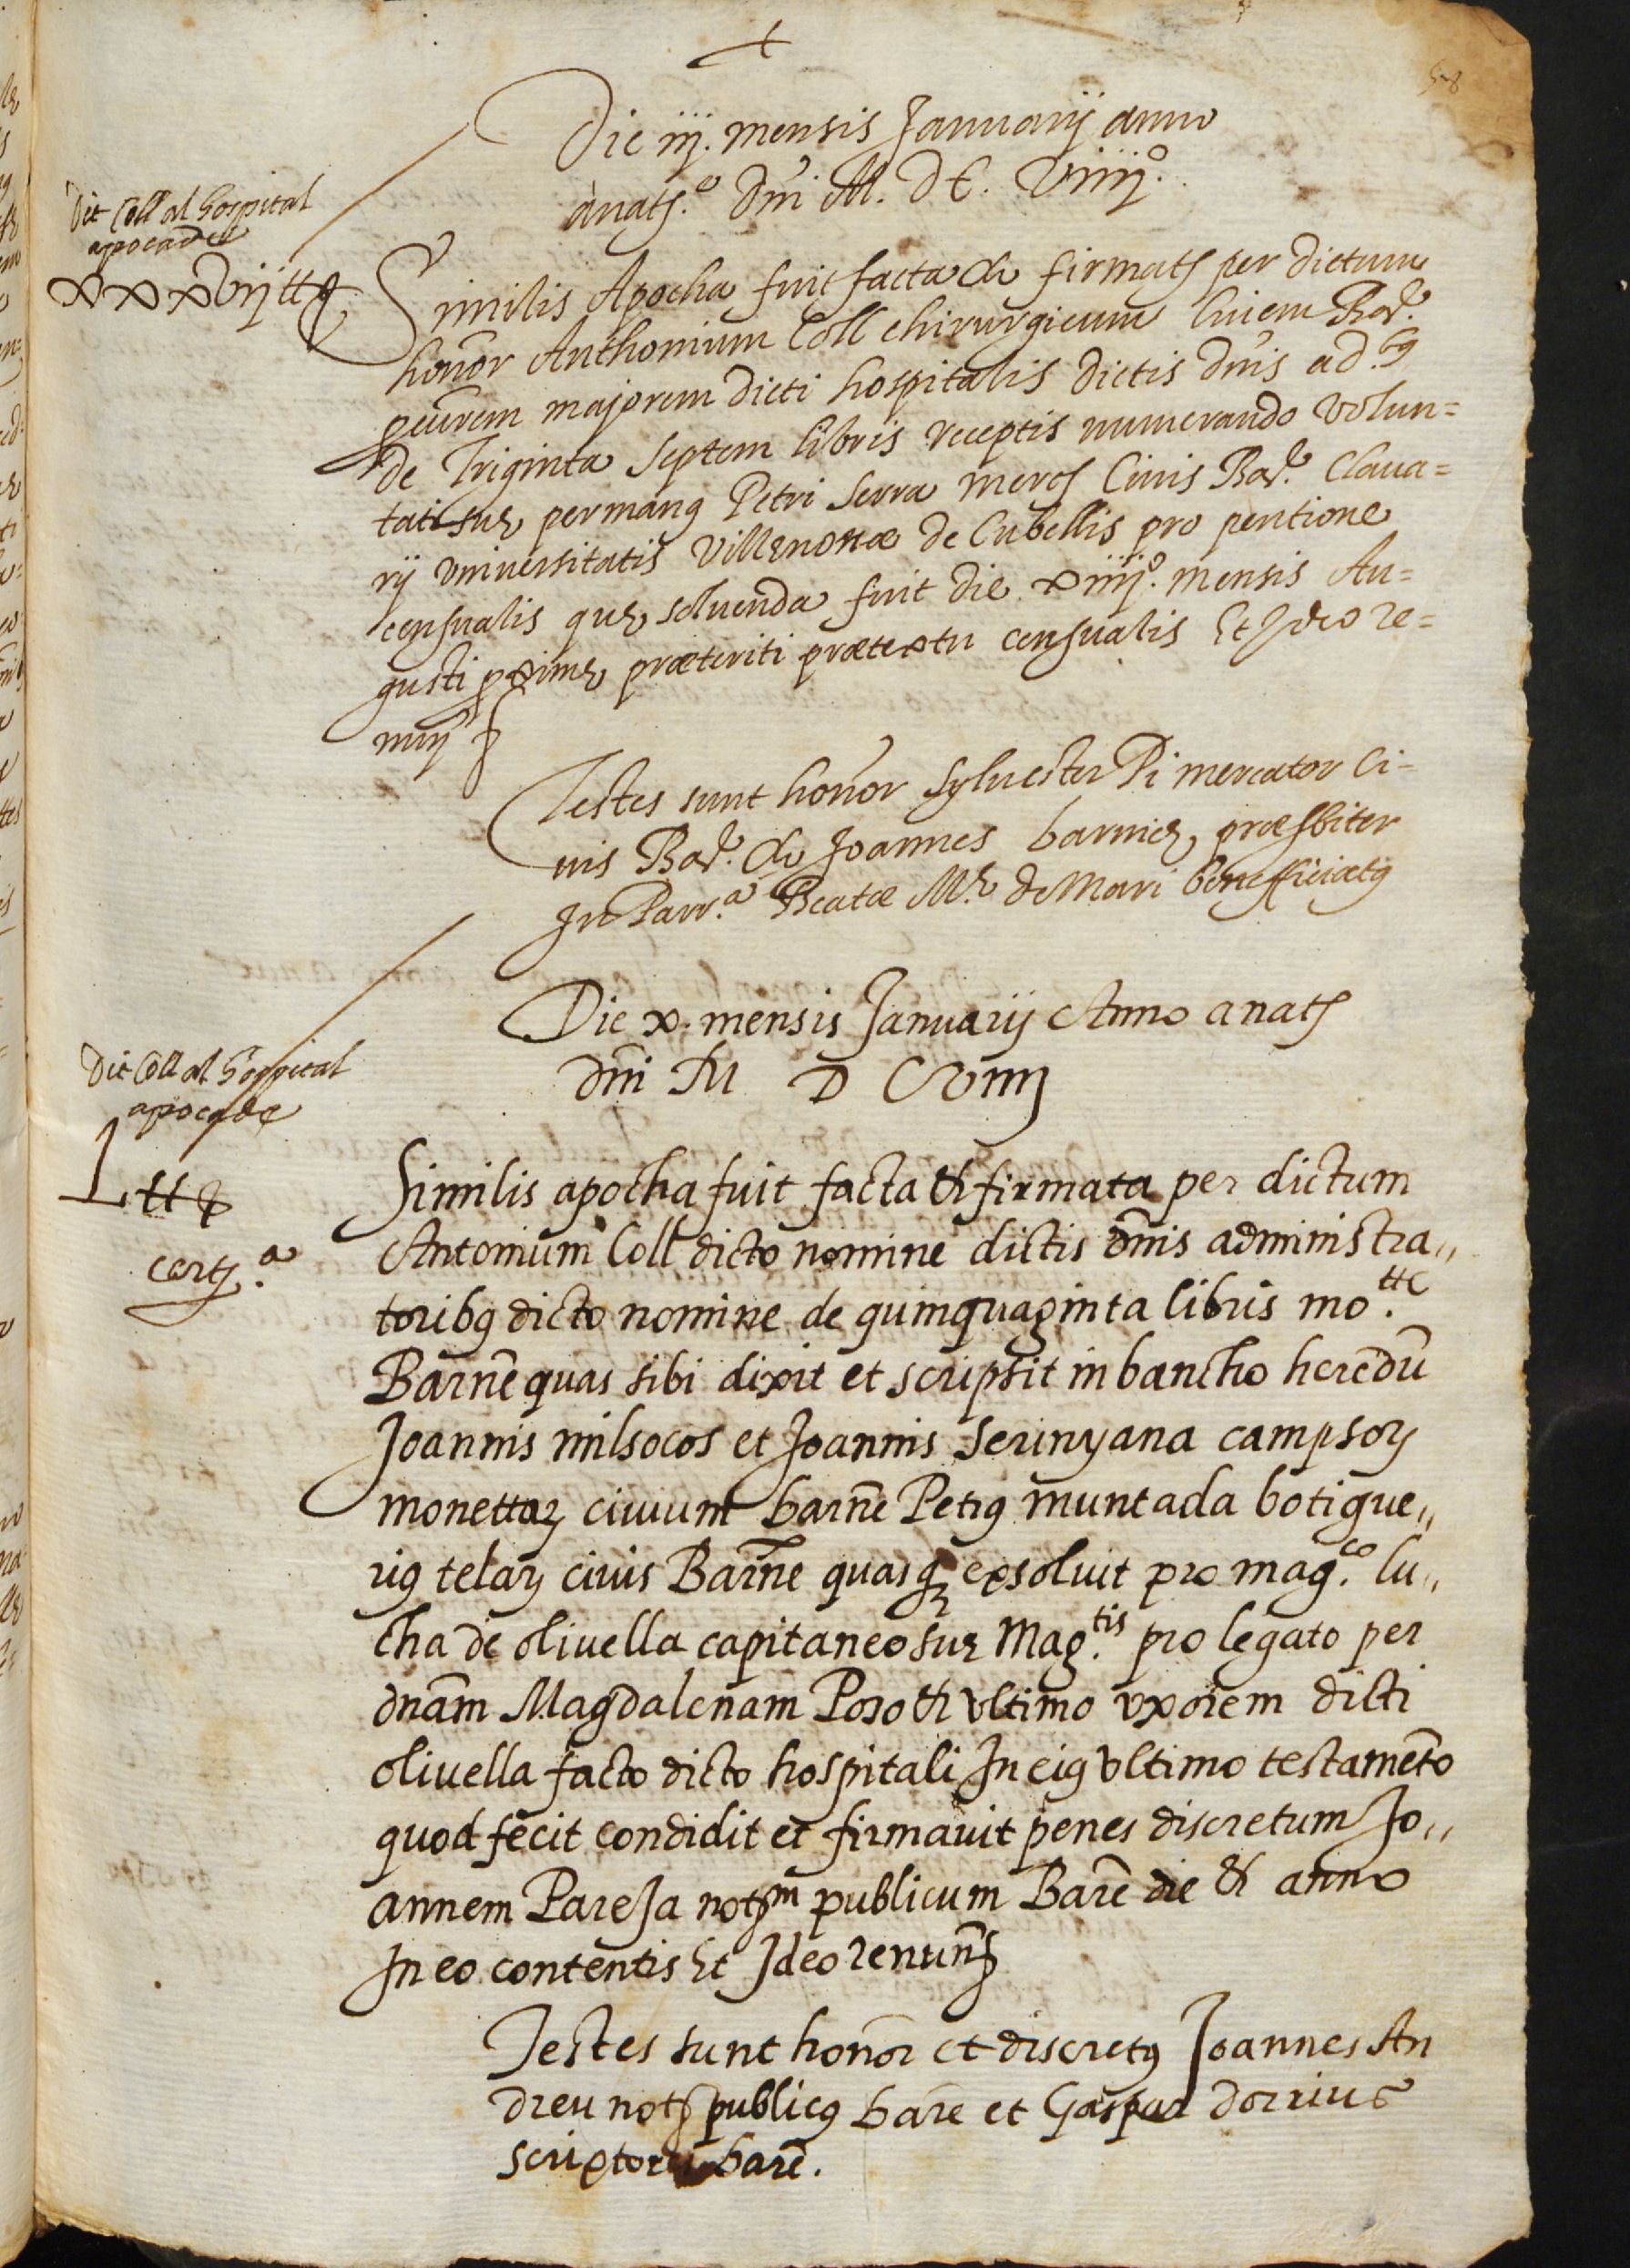 Die iij. mensis Januarij anno
a nat.º Dni M. D C. viiij.º
Dit Coll al hospital
apoca de
xxxvij ℔
Similis Apocha fuit facta & firmata per dictum
honor Anthonium Coll chirurgicum Civem Bar.e
priorem majorem dicti hospitalis dictis dnis ad.bus
de Triginta septem libris receptis numerando volun=
tati suę per manus Petri Serra merc Civis Bar.e Clava=
rij vniversitatis Villęnovæ de Cubellis pro pentione
censualis quę soluenda fuit die xiiij.º mensis Au=
gusti proximę præteriti prætextu censualis Et Ideo re=
nuny
Testes sunt honor Sylvester Pi mercator Ci=
vis Bar.e & Joannes barnier, præsbiter
In Parr.a Beatæ M.ę de Mari benefficiatus
Die x. mensis Januarij Anno a nat
dni M D C viiij
Dit Coll al hospital
apoca de
L ℔
cert.a
Similis apocha fuit facta & firmata per dictum
Antonium Coll dicto nomine dictis dnis administra„
toribus dicto nomine de quinquaginta libris mo.tte
Barne quas sibi dixit et scripsit in bancho heredu
Joannis milsocos et Joannis Serinyana campsor
monettar civium barne Petrus muntada botigue„
rius telar civis Barne quasq exsoluit pro mag.co lu„
cha de olivella capitaneo suę Mag.tis pro legato per
dnam Magdalenam Poso & vltimo vxorem dicti
olivella facto dicto hospitali In eius vltimo testameto
quod fecit condidit et firmavit penes discretum Jo„
annem Pareja notm publicum Bare die & anno
In eo contentis Et Ideo renun
Testes sunt honor et discretus Joannes An
dreu not publicus bare et Gaspar dorrius
scriptores bare.